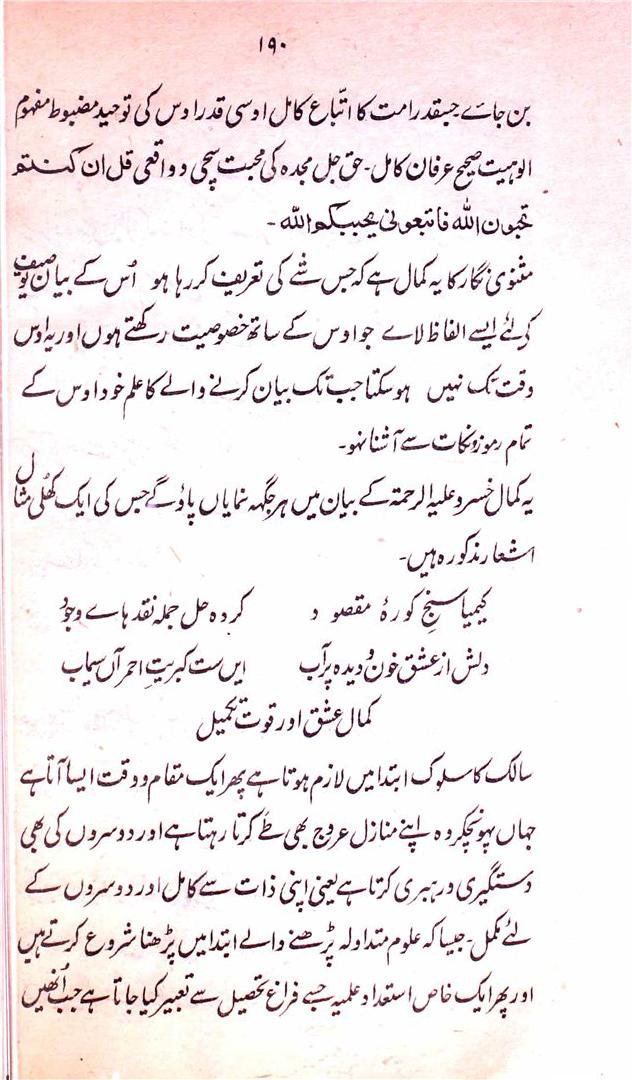 ۱۹۰
بن جائے جسقدر امت کا اتّباع کامل اوسی قدر اوس کی توحید مضبوط مفہوم
الوہیت صحیح عرفان کامل۔ حق جل مجدہ کی محبت سچی و واقعی قل ان کنتم
تحبون اللہ فاتبعونی یحببکم اللہ۔
مثنوی نگار کا یہ کمال ہے کہ جس شے کی تعریف کر رہا ہو اُس کے بیان توصیف
کے لئے ایسے الفاظ لاے جو اوس کے ساتھ خصوصیت رکھتے ہوں اور یہ اوس
وقت تک نہیں ہوسکتا جب تک بیان کرنے والے کا علم خود اوس کے
تمام رموز و نکات سے آشنا نہو۔
یہ کمال خسرو علیہ الرحمۃ کے بیان میں ہر جگہہ نمایاں پاؤگے جس کی ایک کُھلی مثال
اشعار مذکورہ ہیں۔
کیمیا سنجِ کورۂ مقصود کردہ حل جملہ نقد ہاے وجود
دلش از عشق خون و دیدہ پر آب ایں ست کبریتِ احمر آں سیماب
کمال عشق اور قوت تکمیل
سالک کا سلوک ابتدا میں لازم ہوتا ہے پھر ایک مقام و وقت ایسا آتا ہے
جہاں پہونچکر وہ اپنے منازل عروج بھی طے کرتا رہتا ہے اور دوسروں کی بھی
دستگیری و رہبری کرتا ہے یعنی اپنی ذات سے کامل اور دوسروں کے
لئے مکمل۔ جیسا کہ علوم متداولہ پڑھنے والے ابتدا میں پڑھنا شروع کرتے ہیں
اور پھر ایک خاص استعداد علمیہ جسے فراغ تحصیل سے تعبیر کیا جاتا ہے جب اُنھیں